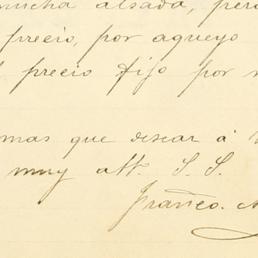 mucha alsada, pero
precio, por aqueyo
precio fijo por
mas que desear á
muy att. S. S.
Franco.